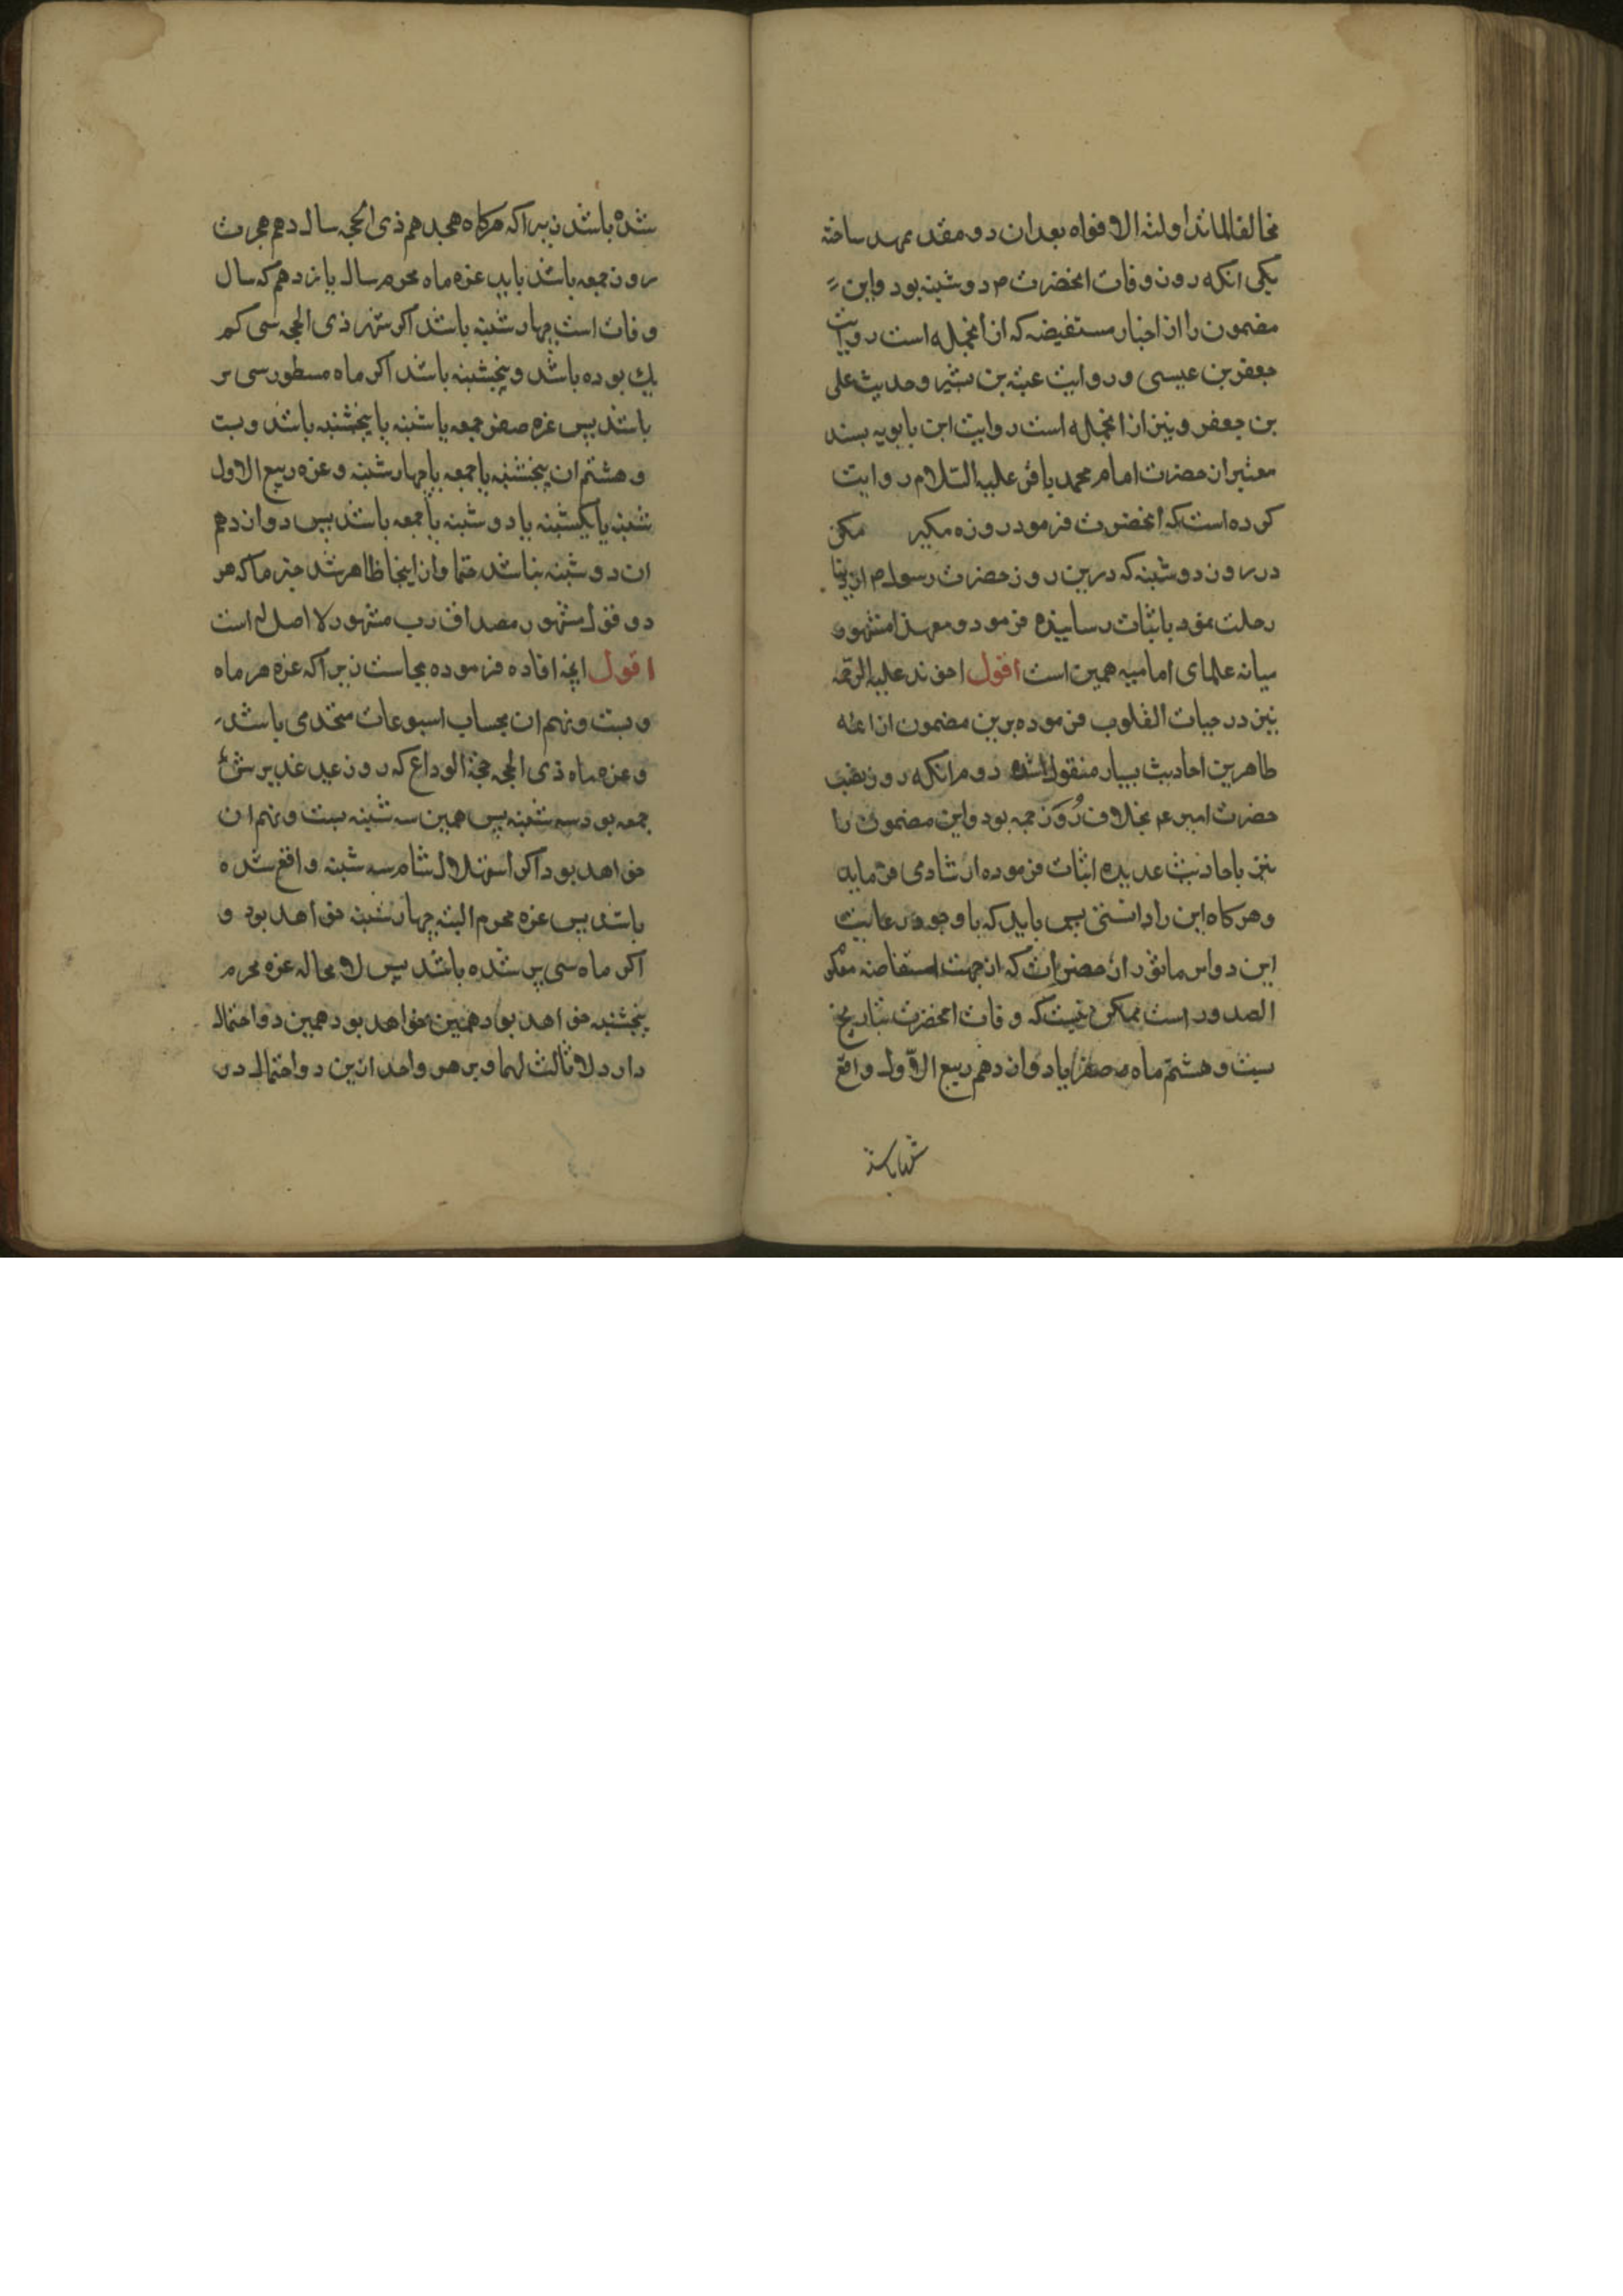 مخالفا لما تداولته الافواه بعد ازان دو مقدمه ممهد ساخته
یکی انکه روز وفات انحضرت م دوشنبه بود واین
مضمون را از اخبار مستفیضه که ازانجمله است روایت
جعفر بن عیسی و روایت عتبه بن بشیر وحدیث علی
بن جعفر ونیز ازانجمله است روایت ابن بابویه بسند
معتبر از حضرت امام محمد باقر علیه السلام روایت
کرده است که انحضرت فرمود روزه مکیر مکن
در روز دوشنبه که درین روز حضرت رسول م از دنیا
رحلت نمود باثبات رسانیده فرمود ومعهذا مشهور
میانه علمای امامیه همین است اقول اخوند علیه الرحمه
نیز در حیات القلوب فرموده برین مضمون از ائمه
طاهرین احادیث بسیار منقول شده دوم انکه روز نصب
حضرت امیر ع بخلافت روز جمعه بود واین مضمون را
نیز باحادیث عدیده اثبات فرموده ارشاد می فرماید
وهرکاه این را دانستی پس باید که با وجود رعایت
این دو امر ماثور ازان حضرات که از جهت استفاضه معلوم
الصدور است ممکن نیست که وفات انحضرت بتاریخ
بیست وهشتم ماه صفر یا دوازدهم ربیع الاول واقع
شده باشد
شده باشد زیرا که هرکاه هجدهم ذی الحجه سال دهم هجرت
روز جمعه باشد باید غره ماه محرم سال یازدهم که سال
وفات است چهارشنبه باشد اکر شهر ذی الحجه سی کم
یک بوده باشد وپنجشنبه باشد اکر ماه مسطور سی پر
باشد پس غره صفر جمعه یا شنبه یا پنجشنبه باشد وبیست
وهشتم ان پنجشنبه یا جمعه یا چهارشنبه وغره ربیع الاول
شنبه یا یکشنبه یا دوشنبه یا جمعه باشد پس دوازدهم
ان دوشنبه نباشد حتما وازاینجا ظاهر شد جزما که هر
دو قول مشهور مصداق رب مشهور لا اصل له است
اقول انچه افاده فرموده بجاست زیرا که غره هر ماه
وبیست ونهم ان بحساب اسبوعات متحد می باشد
وغره ماه ذی الحجه حجة الوداع که روز عید غدیرش
جمعه بود سه شنبه پس همین سه شنبه بیست ونهم ان
خواهد بود اکر استهلال شام سه شنبه واقع شده
باشد پس غره محرم البته چهارشنبه خواهد بود و
اکر ماه سی پر شده باشد پس لا محاله غره محرم
پنجشنبه خواهد بود همین خواهد بود همین دو احتمال
دارد لا ثالث لهما وبر هر واحد ازین دو احتمال در